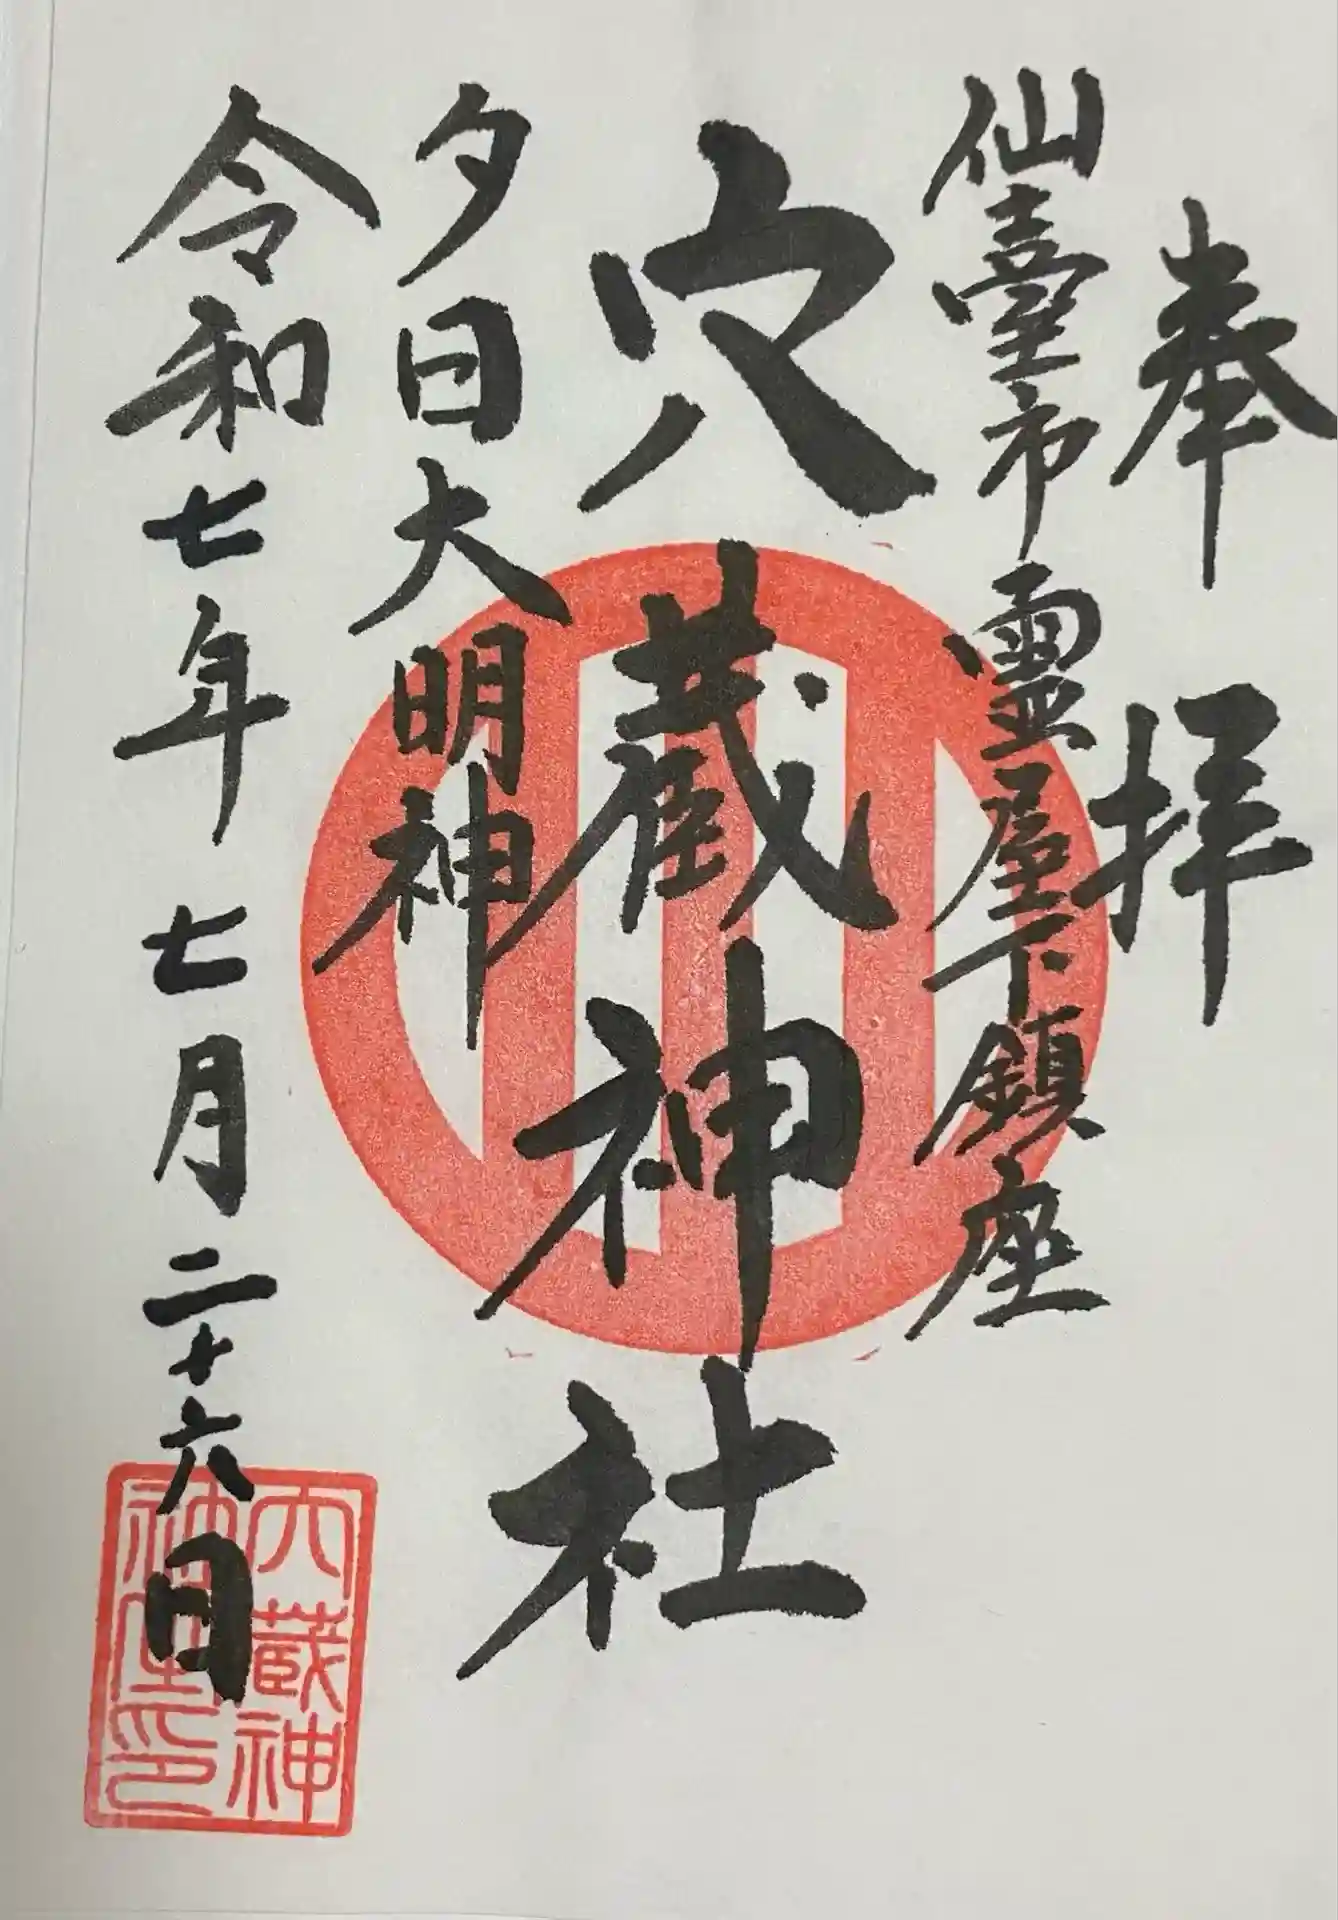 奉拝
仙臺市霊屋下鎮座
穴蔵神社
夕日大明神
令和七年七月二十六日
穴蔵神
社印